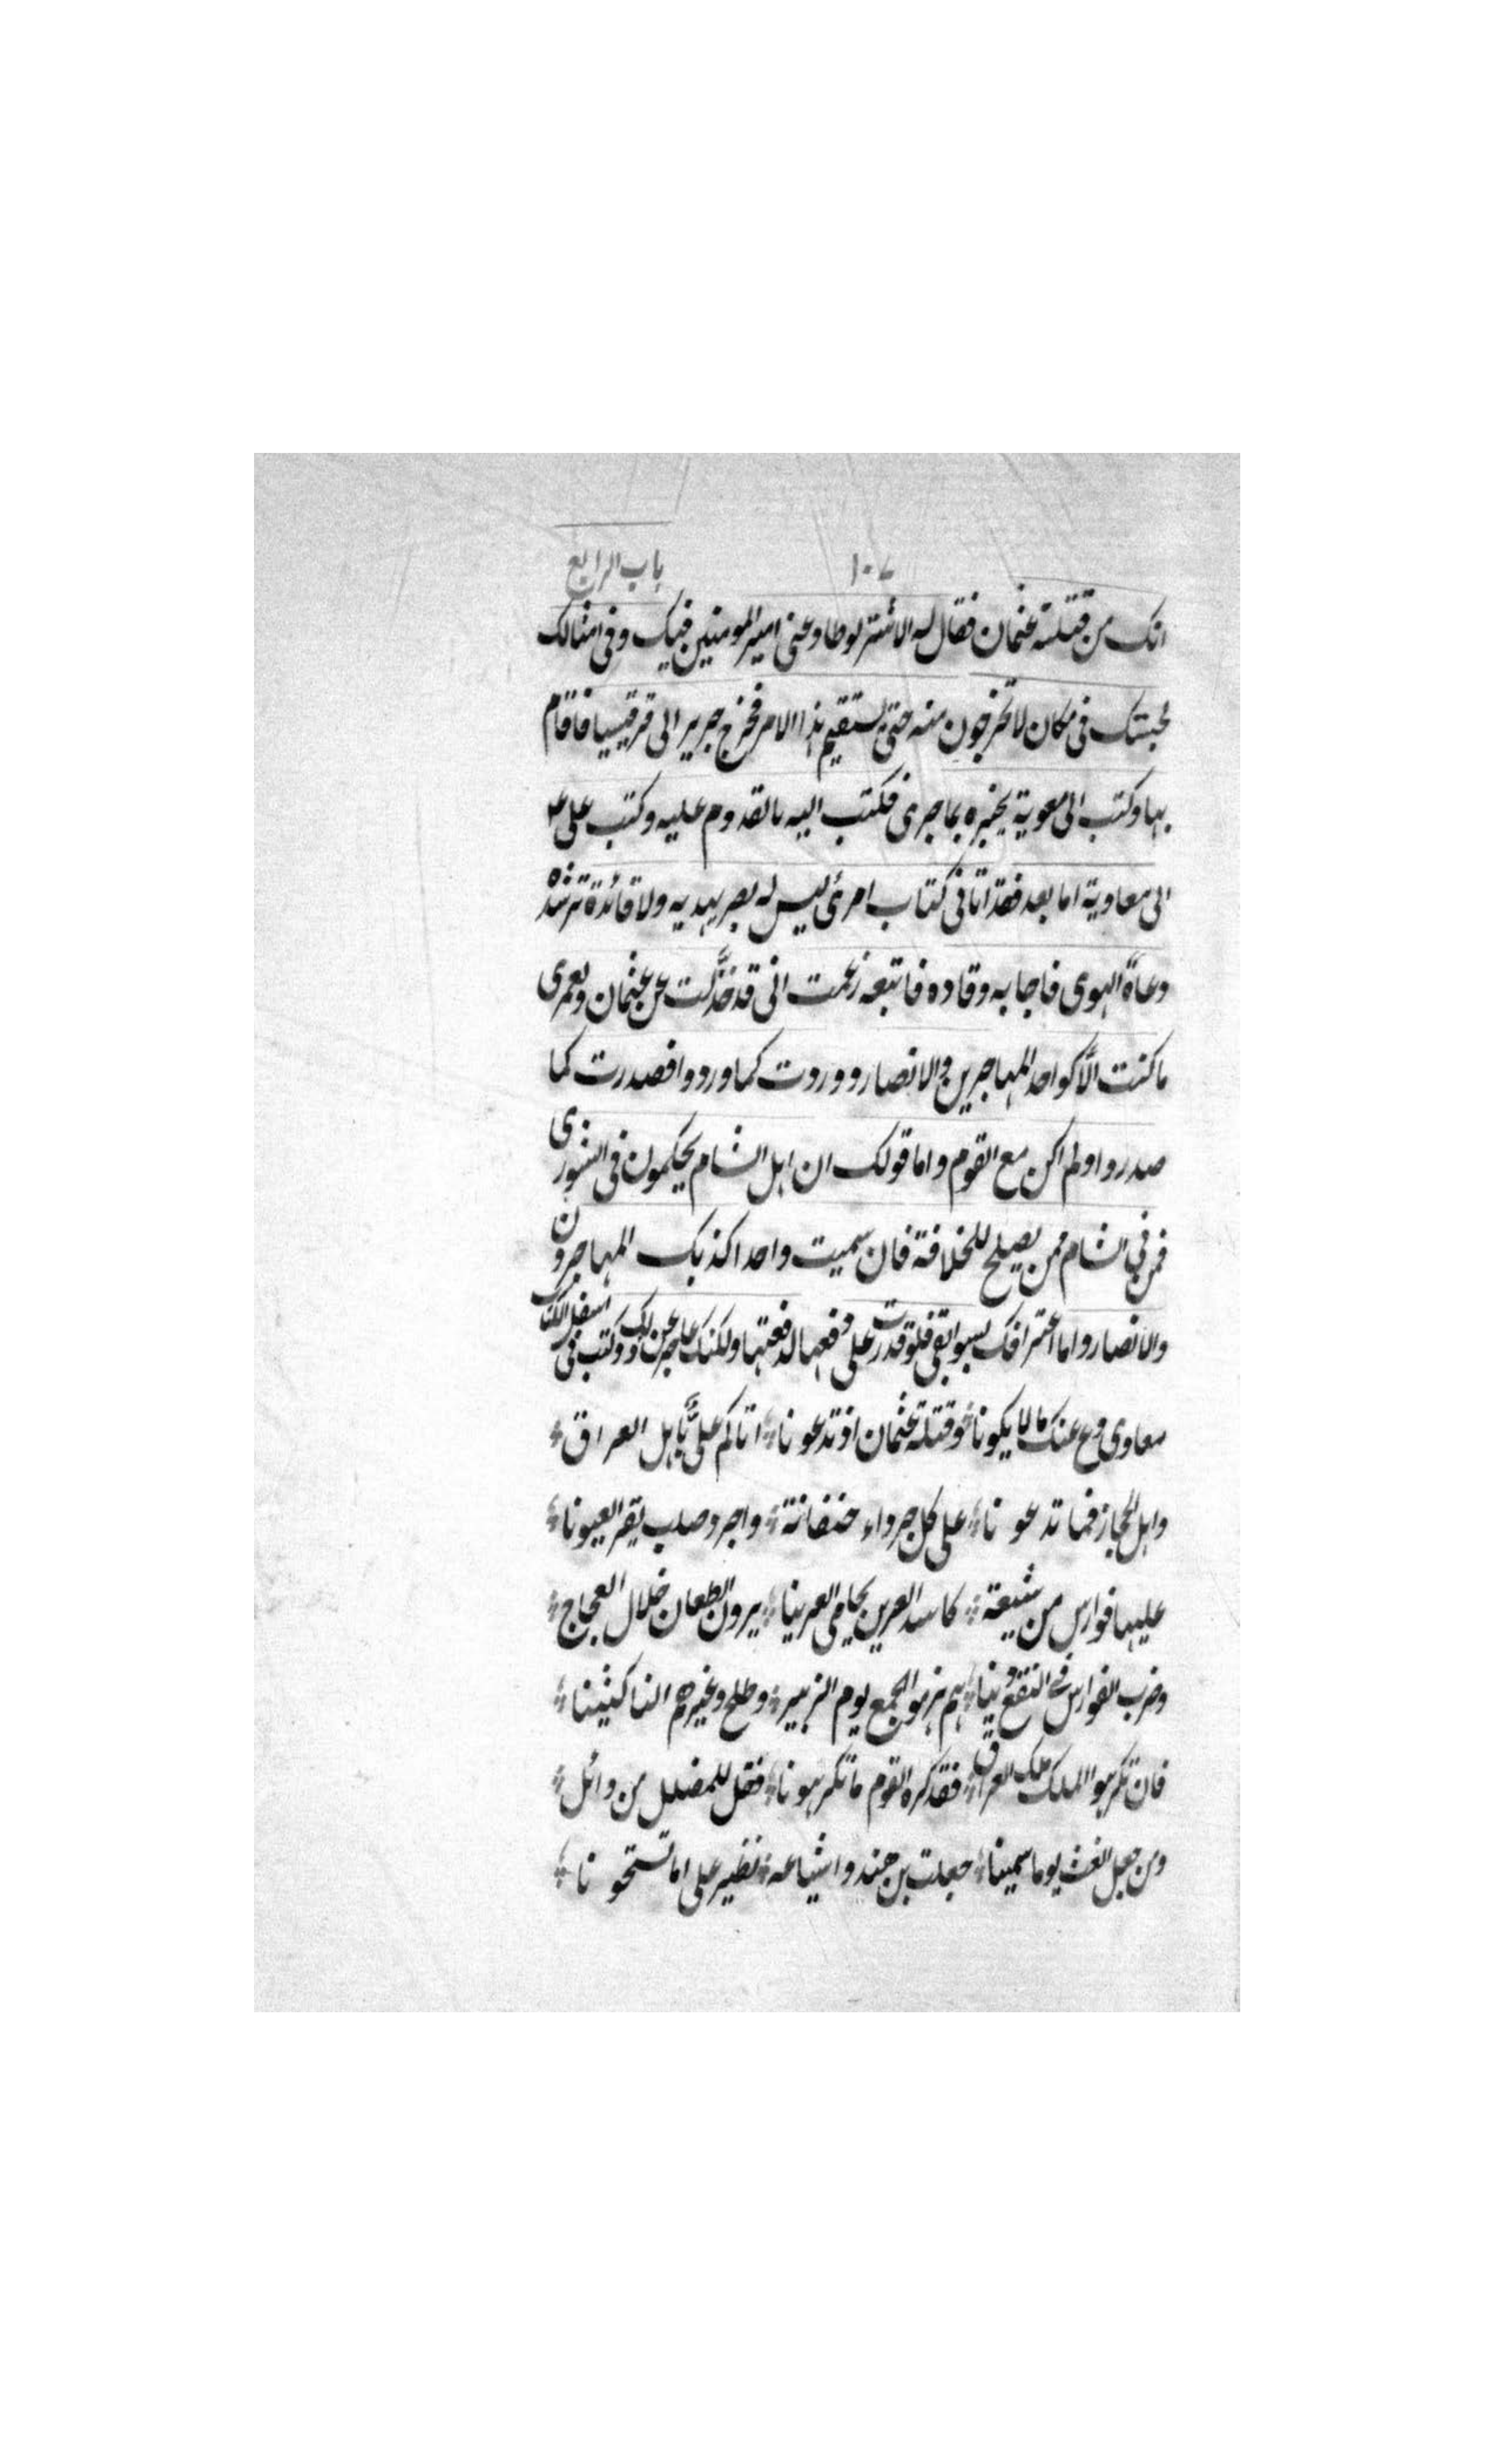 باب الرابع ١٠٧
انک من قتلة عثمان فقال له الاشتر لو طاوعنی امیر المومنین فیک وفی امثالک
لحبستک فی مکان لا تخرجون منه حتی یستقیم هذا الامر فخرج جریر الی قرقیسیا فاقام
بها وکتب الی معویة یخبره بما جری فکتب الیه بالقدوم علیه وکتب علی ع
الی معاویة اما بعد فقد اتانی کتاب امرئ لیس له بصر یهدیه ولا قائدة ترشده
دعاة الهوی فاجابه وقاده فاتبعه زعمت انی قد خذّلت عن عثمان ولعمری
ما کنت الّا کواحد المهاجرین والانصار ووردت کما وردوا فصدرت کما
صدروا ولم اکن مع القوم واما قولک ان اهل الشام یحکمون فی الشوری
فمن فی الشام ممن یصلح للخلافة فان سمیت واحدا کذبک المهاجرون
والانصار واما اعترافک بسوابقی فلو قدرت علی دفعها لدفعتها ولکنک عاجز عن ذلک وکتب فی اسفل الکتاب
معاوی دع عنک ما لا یکونا وقتلة عثمان اذ تدعونا اتاکم علیّ باهل العراق
واهل الحجاز فما تدعونا علی کل جرداء خنفانة واجرد صلب یقر العیونا
علیها فوارس من شیعة کاسد العرین یحامی العرینا یرون الطعان خلال العجاج
وضرب الفوارس فی النقع دینا هم هزموا الجمع یوم الزبیر وطلح وغیرهم الناکثینا
فان تکرهوا الملک ملک العراق فقد کره القوم ما تکرهونا فقل للمضلل من وائل
ومن جعل الغث یوما سمینا جعلت بن هند واشیاعه نظیر علی اما تستحونا